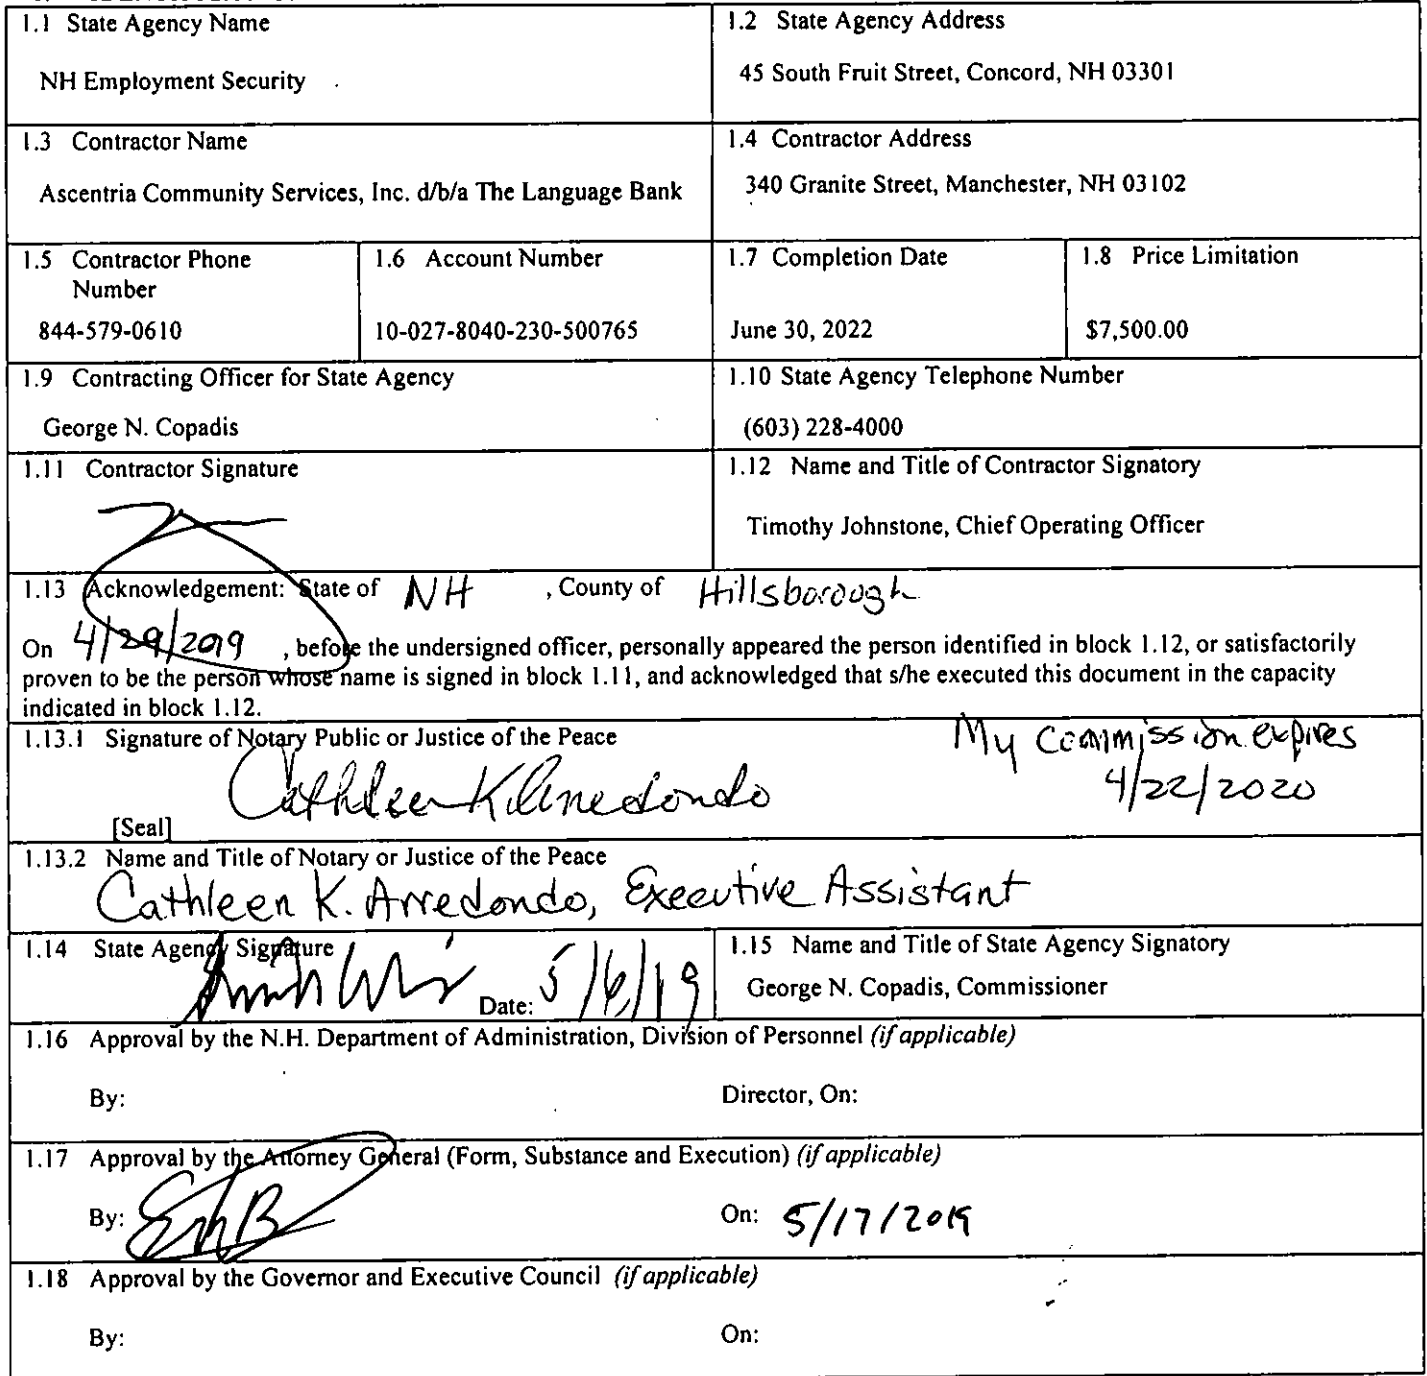 1.1 State Agency Name
NH Employment Security
1.2 State Agency Address
45 South Fruit Street, Concord, NH 03301
1.3 Contractor Name
Ascentria Community Services, Inc. d/b/a The Language Bank
1.4 Contractor Address
340 Granite Street, Manchester, NH 03102
1.5 Contractor Phone
Number
844-579-0610
1.6 Account Number
10-027-8040-230-500765
1.7 Completion Date
June 30, 2022
1.8 Price Limitation
$7,500.00
1.9 Contracting Officer for State Agency
George N. Copadis
1.10 State Agency Telephone Number
(603) 228-4000
1.11 Contractor Signature
1.12 Name and Title of Contractor Signatory
Timothy Johnstone, Chief Operating Officer
1.13 Acknowledgement: State of NH , County of Hillsborough
On 4/29/2019 , before the undersigned officer, personally appeared the person identified in block 1.12, or satisfactorily
proven to be the person whose name is signed in block 1.11, and acknowledged that s/he executed this document in the capacity
indicated in block 1.12.
1.13.1 Signature of Notary Public or Justice of the Peace
My Commission expires
4/22/2020
Cathleen K Arredondo
[Seal]
1.13.2 Name and Title of Notary or Justice of the Peace
Cathleen K. Arredondo, Executive Assistant
1.14 State Agency Signature
Date: 5/6/19
1.15 Name and Title of State Agency Signatory
George N. Copadis, Commissioner
1.16 Approval by the N.H. Department of Administration, Division of Personnel (if applicable)
By:
Director, On:
1.17 Approval by the Attorney General (Form, Substance and Execution) (if applicable)
By:
On: 5/17/2019
1.18 Approval by the Governor and Executive Council (if applicable)
By:
On: